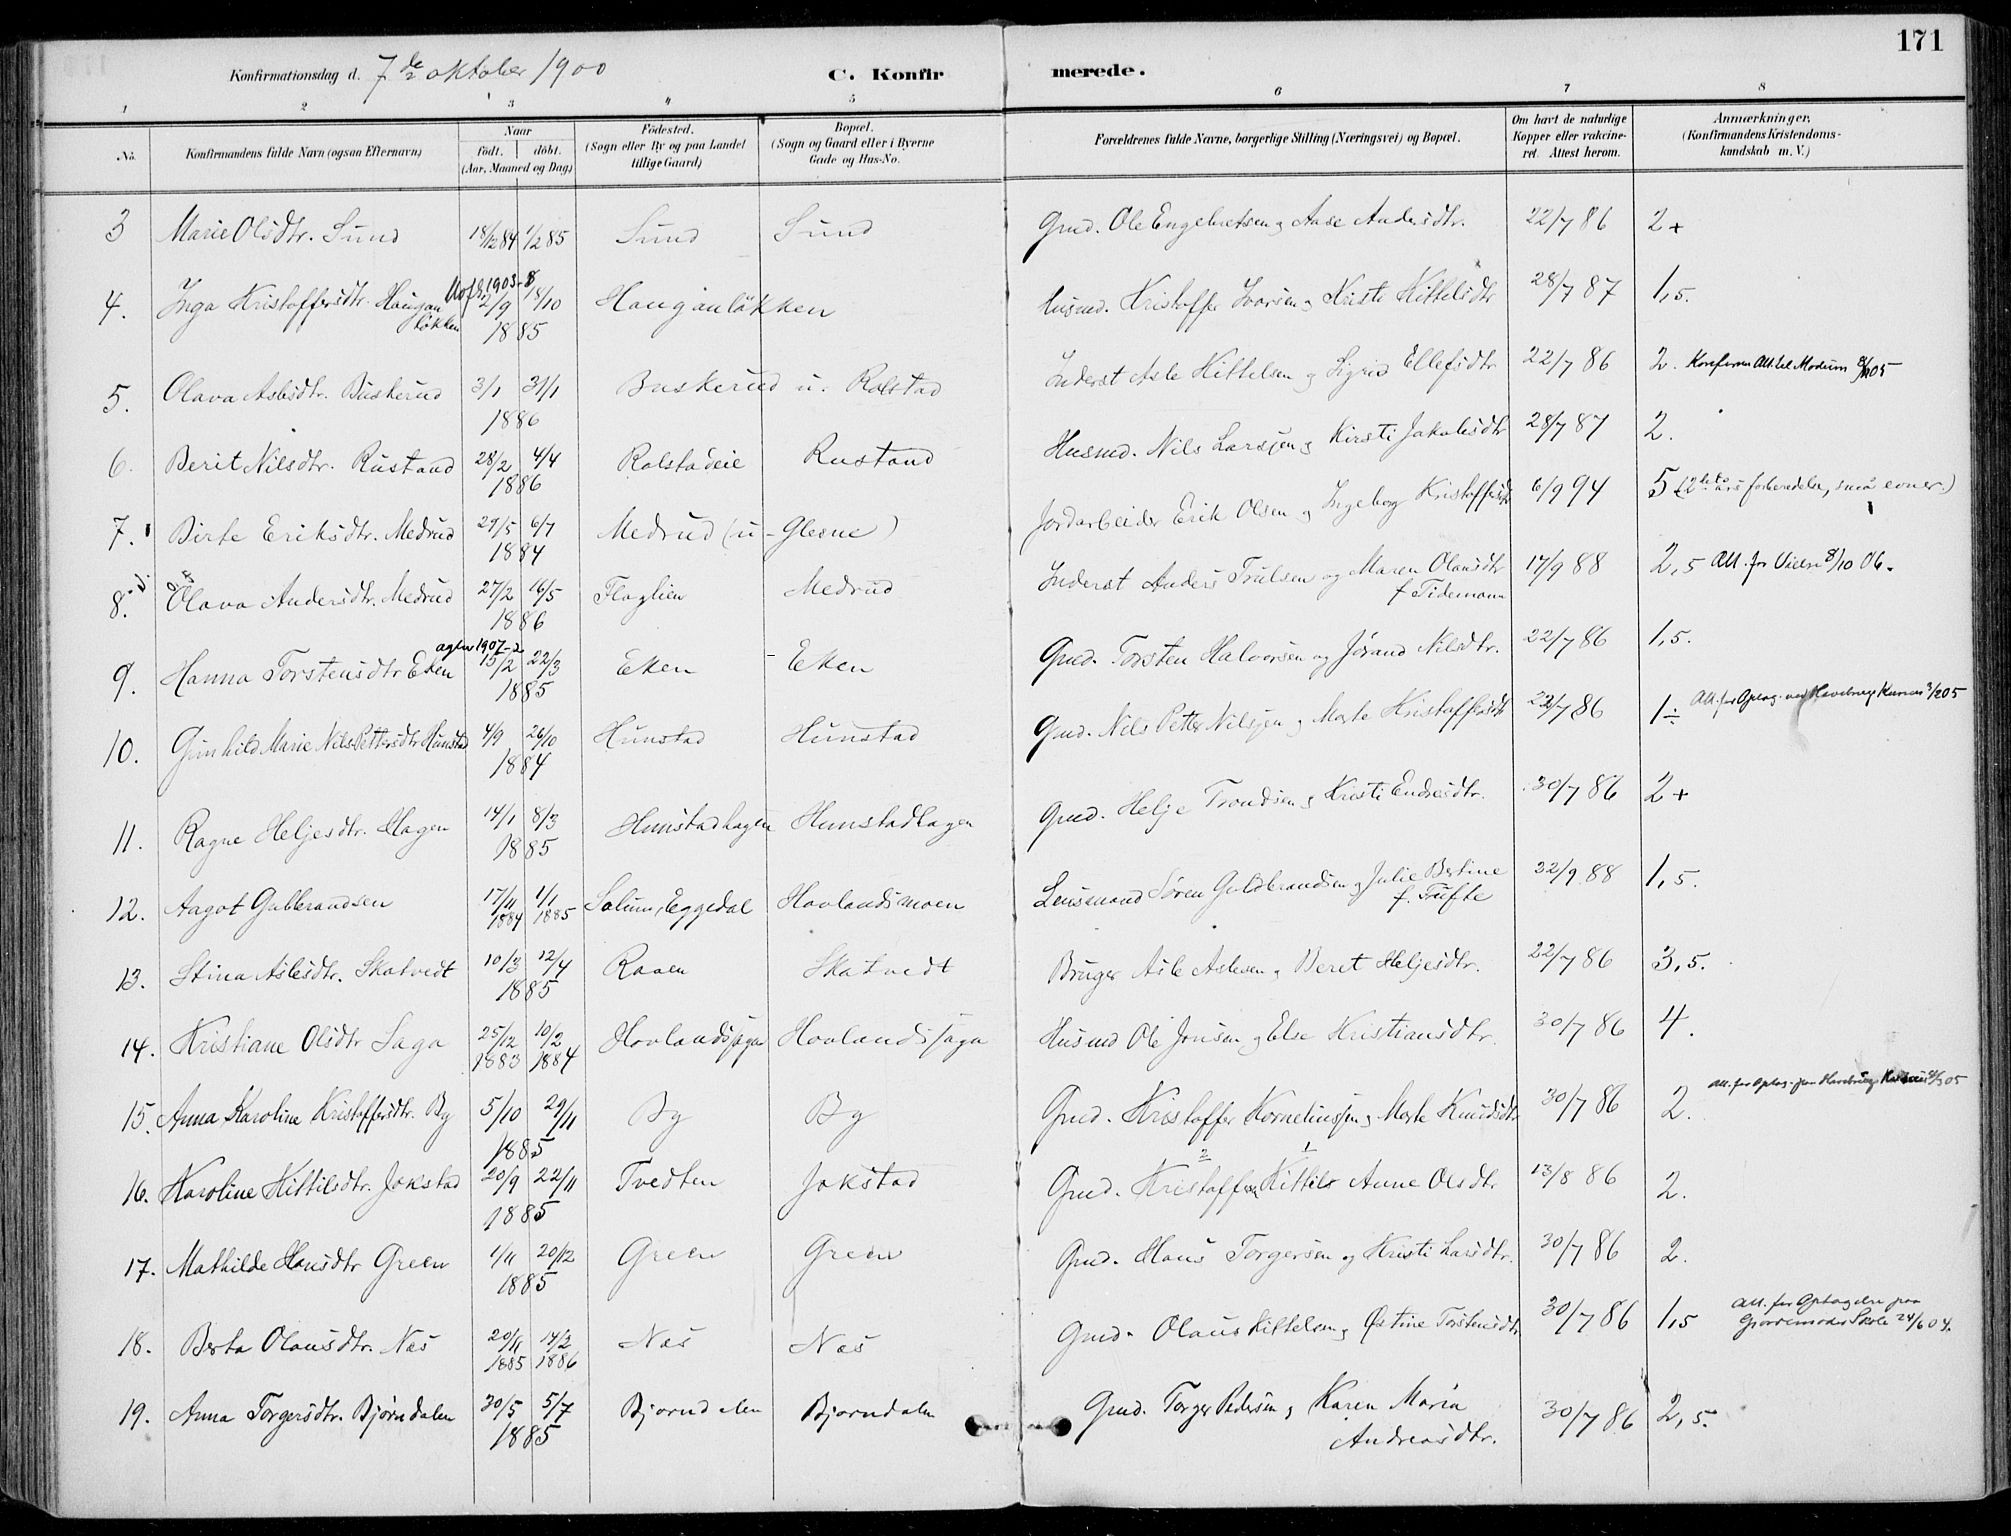 171
Konfirmationsdag d. 7de oktober 1900 C. Konfirmerede.
1 2 3 4 5 6 7 8
No. Konfirmandens fulde Navn (ogsaa Efternavn) Naar født. døbt. (Aar, Maaned og Dag) Fødested. (Sogn eller By og paa Landet tillige Gaard) Bopæl. (Sogn og Gaard eller i Byerne Gade og Hus-No. Forældrenes fulde Navne, borgerlige Stilling (Næringsvei) og Bopæl. Om havt de naturlige Kopper eller vakcineret. Attest herom. Anmærkninger. (Konfirmandens Kristendomskundskab m. V.)
3 Marie Olsdtr. Sund 18/12 84 1/2 85 Sund Sund Gmd. Ole Engebretsen og Aase Andersdtr. 22/7 86 2+
4. Inga Kristoffersdtr. Haugan løkken 1903-8 2/9 14/10 1885 Hauganløkken Husmd. Kristoffer Ivarsen og Kristi Kittelsdtr 28/7 87 1,5.
5. Olava Aslesdtr. Buskerud 3/1 31/1 1886 Buskerud u. Rolstad Inderst Asle Kittelsen og Sigrid Ellefsdtr 22/7 86 2. Konfirm. Att. til Modum 05
6. Berit Nilsdtr. Rustand 28/2 4/4 1886 Rolstadeie Rustand Husmd. Nils Larssen og Kirsti Jakobsdtr 28/7 87 2.
7. Birte Eriksdtr. Medrud 29/5 6/7 1884 Medrud (u. Glesne) Jordarbeider Erik Olsen og Ingeborg Kristoffersdtr 6/9 94 5 (2det års forberedelse, små evner.)
8. Olava Andersdtr. Medrud 27/2 16/5 1886 Flaglien Medrud Inderst Anders Trulsen og Maren Olausdtr f. Tidemann 17/9 88 2,5 Att. for Vielse 8/10 06.
9. Hanna Torstensdtr Eken 1907-2 15/2 22/3 1885 Eken Eken Gmd. Torsten Halvorsen og Jørand Nilsdtr. 22/7 86 1,5.
10. Gunhild Marie Nils Pettersdtr Hunstad 4/9 26/10 1884 Hunstad Hunstad Gmd. Nils Petter Nilssen og Marte Kristoffersdtr 22/7 86 1÷ Att. for Optag. ved Havebrugs Kursus 3/2 05
11. Ragne Heljesdtr. Hagen 14/1 8/3 1885 Hunstadhagen Hunstadhagen Gmd. Helje Trondsen og Kristi Endresdtr. 30/7 86 2+
12. Aagot Gulbrandsen 17/11 1884 1/1 1885 Solum, Eggedal Hovlandsmoen Lensmand Søren Guldbrandsen og Julie Bertine f. Tufte 22/9 88 1,5.
13. Stina Aslesdtr. Skatvedt 10/3 12/4 1885 Raaen Skatvedt Bruger Asle Aslesen og Beret Heljesdtr. 22/7 86 3,5.
14. Kristiane Olsdtr Saga 25/12 1883 10/2 1884 Hovlandssaga Hovlandssaga Husmd Ole Jonsen og Else Kristiansdtr. 30/7 86 4.
15. Anna Karoline Kristoffersdtr. By 5/10 29/11 1885 By By Gmd. Kristoffer Korneliussen og Marte Knudsdtr 30/7 86 2. Att. for Optag. paa Havebrugs Kursus 05
16. Karoline Kittilsdtr. Jokstad 20/9 22/11 1885 Tvedten Jokstad Gmd. Kristoffersen Kittil og Anne Olsdtr 13/8 86 2.
17. Mathilde Hansdtr Green 1/11 20/12 1885 Green Green Gmd. Hans Torgersen og Kristi Larsdtr. 30/7 86 2.
18. Berta Olausdtr. Næs 20/11 1885 14/2 1886 Næs Næs Gmd. Olaus Kittelsen og Østine Torstensdtr. 30/7 86 1,5 Att. for Optagelse paa Gjordemoder Skole 24/6 04.
19. Anna Torgersdtr. Bjørndalen 30/5 5/7 1885 Bjørndalen Bjørndalen Gmd. Torger Pedersen og Karen Maria Andreasdtr. 30/7 86 2,5.